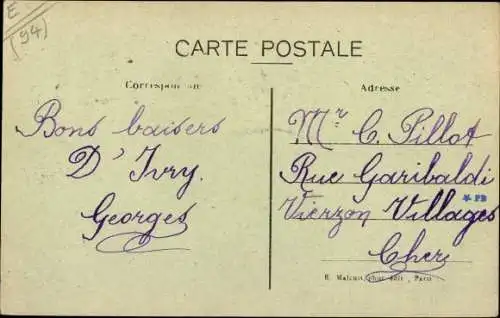 E
(94)
CARTE POSTALE
Correspondance
Adresse
Bons baisers
D'Ivry.
Georges
Mr C. Pillot
Rue Garibaldi
Vierzon Villages
* PB
Cher
E. Malcuit, phot. édit., Paris